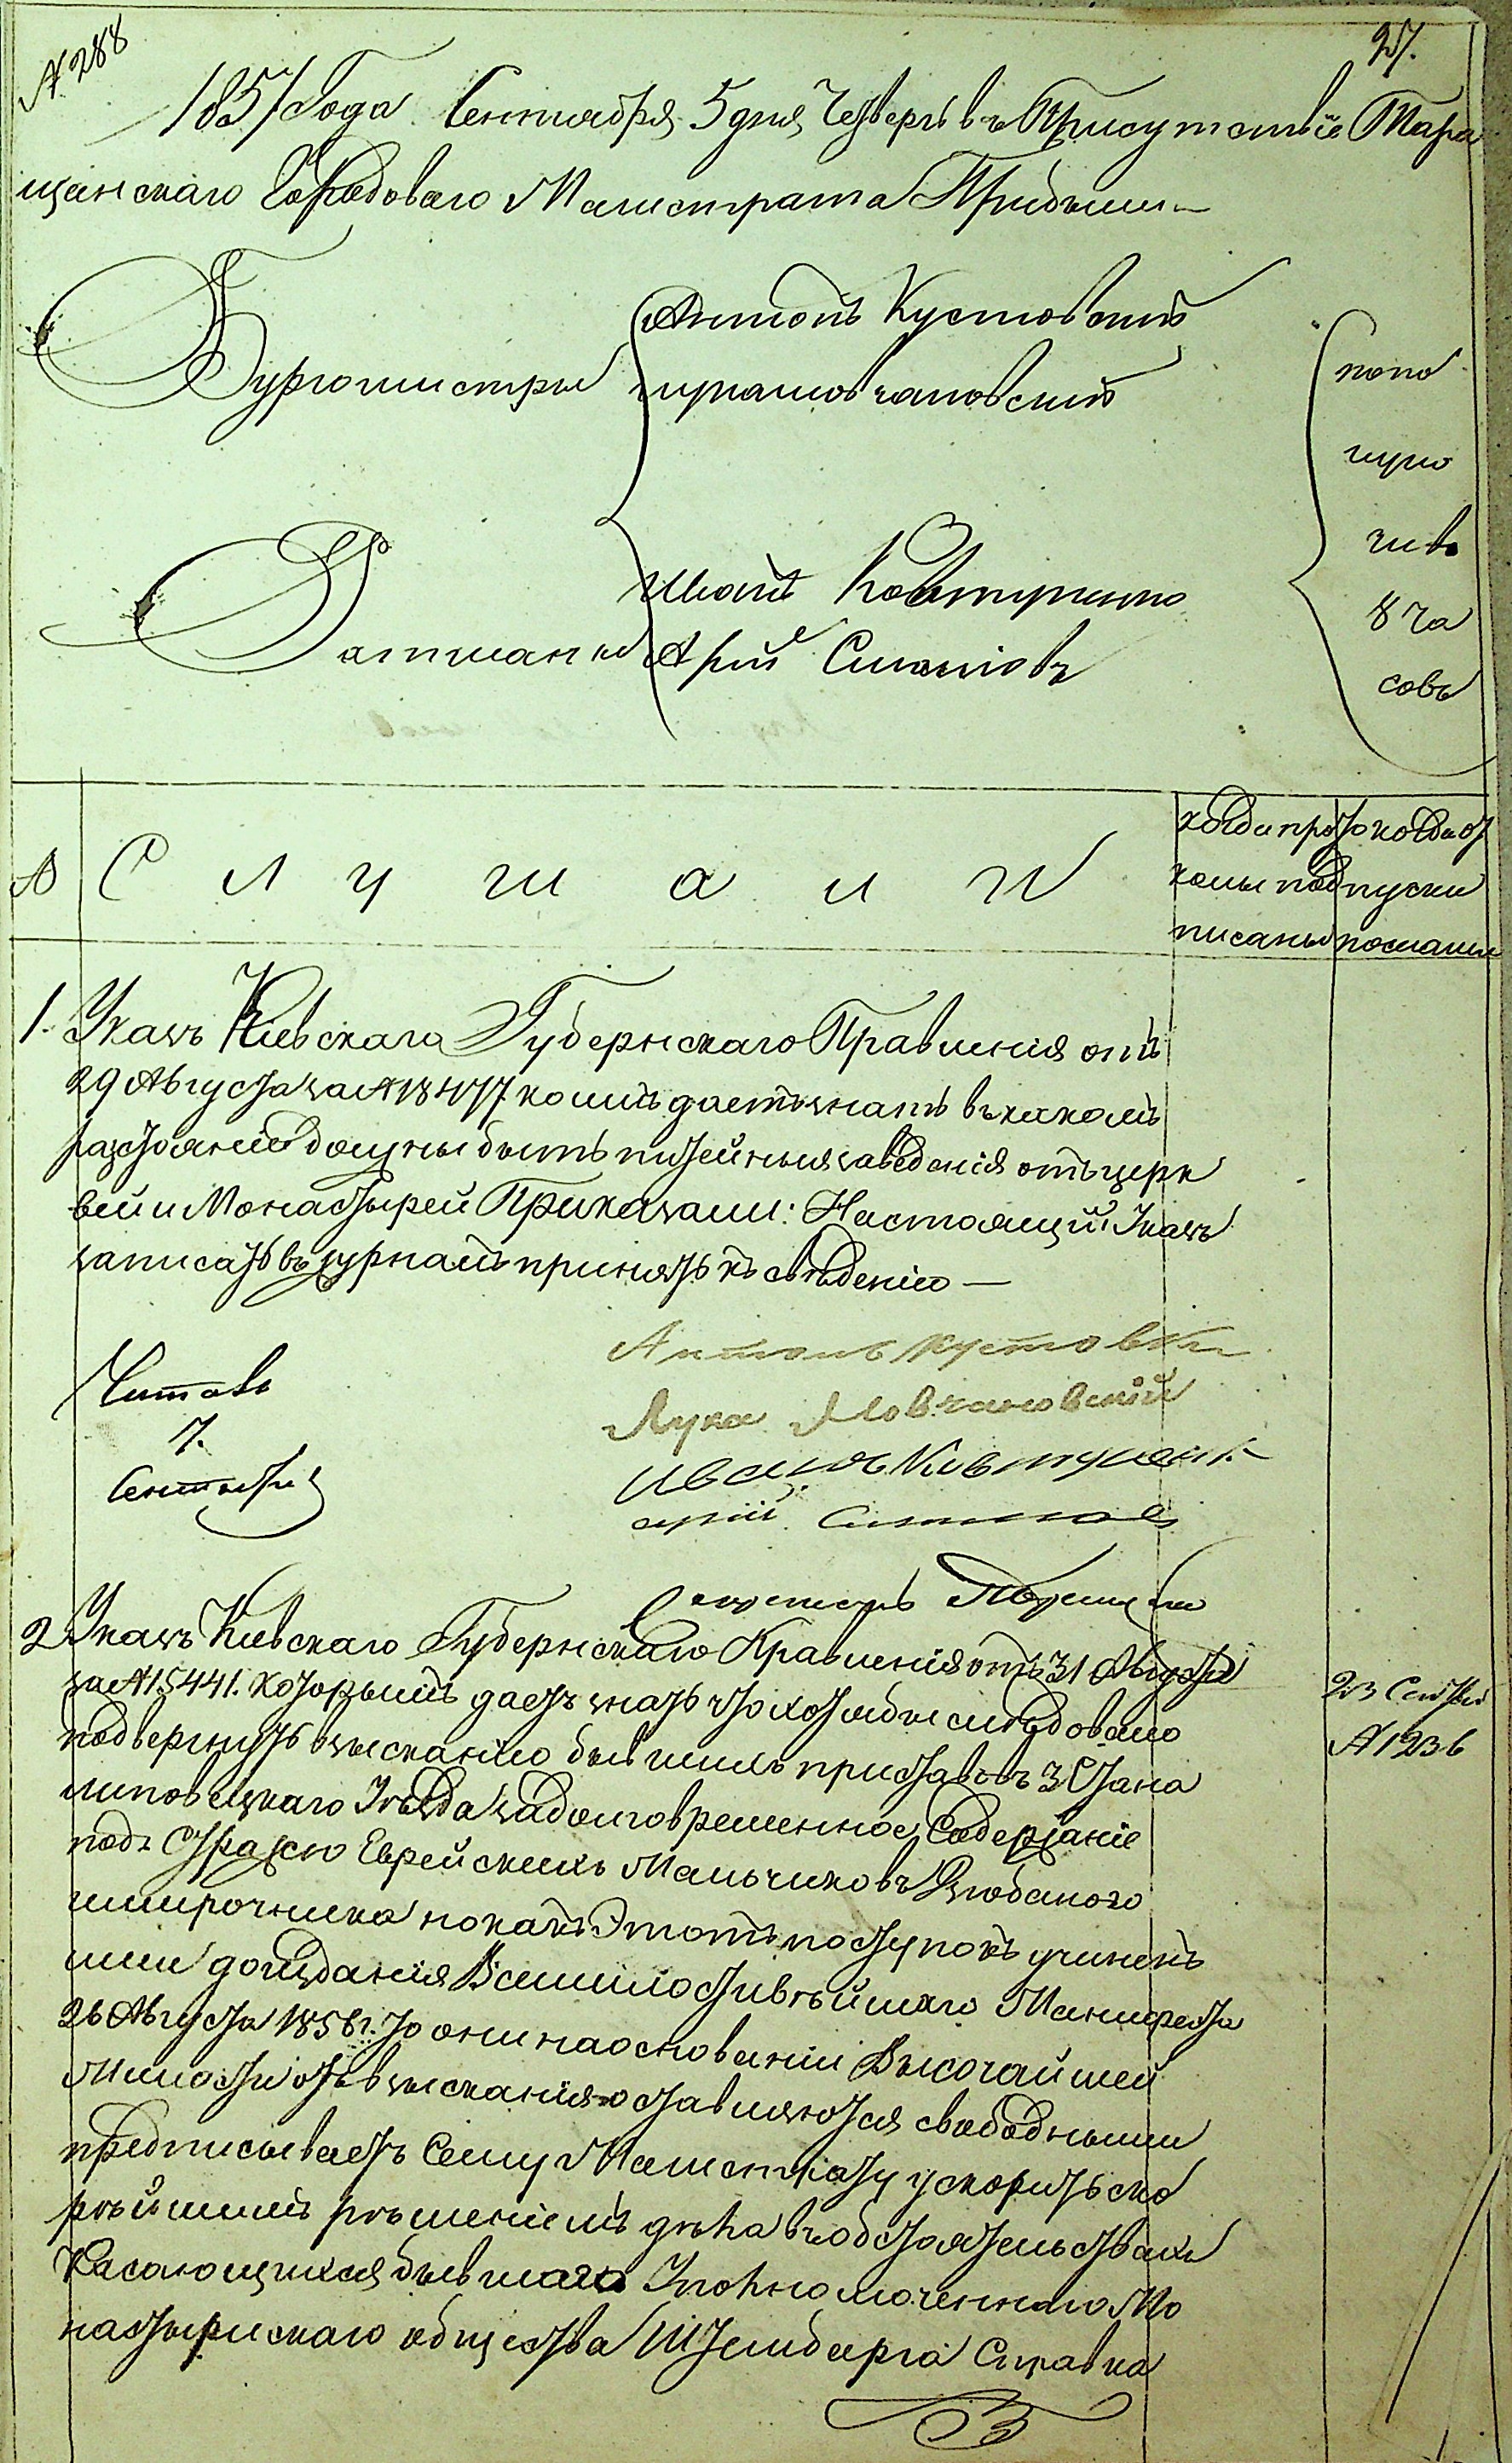 № 288
27.
1857 Года Сентября 5 дня Четверть въ Присутствіе Тара
щанскаго Городоваго Магистрата Прибыли
Бургомистры
Антонъ Кустовский
Лука Мовчановский
Ратманы
Иванъ Ковтуненко
Арій Симхов
попо
лудно
чи въ
8 ча
совъ
№ Слушали
когда прото
колы под
писаны
когда от
пуски
посланы
1. Указъ Киевскаго Губернскаго Правленія отъ
29 Августа за № 18477 коимъ даетъ знать въ какомъ
разстояніи должны быть питейныя заведенія отъ церк
вей и Монастырей Приказали: Настоящий Указъ
записать въ журналъ принять къ свѣденію —
Читалъ
7.
Сентября
Антонъ Кустовски
Лука Мовчановский
Иванъ Ковтуненк
арій
Секретарь
2 Указъ Киевскаго Губернскаго Правленія отъ 31 Августа
за № 15441. которымъ даетъ знать что хотя бы слѣдовало
подвергнуть взысканію бывшихъ приставовъ 3 Стана
липовецкаго Уѣзда за долговременное Содержаніе
подъ Стражею Еврейскихъ Мальчиковъ
но какъ Этотъ поступокъ учиненъ
ими до изданія Всемилостивѣйшаго Манифеста
26 Августа 1856 г. то они на основаніи Высочайшей
Милости отъ взысканія оставляются свободными
предписываетъ Сему Магистрату ускорить ско
рѣйшимъ рѣшеніемъ дѣла въ обстоятельствахъ
Касающихся бывшаго Уполномоченнаго Мо
настырискаго общества Штейнберга Справка
23 Сентбр
№ 1236